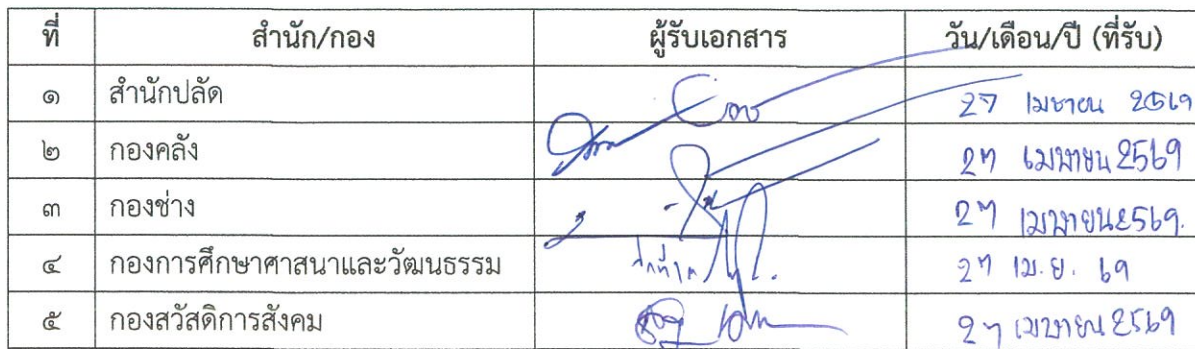 ที่ สำนัก/กอง ผู้รับเอกสาร วัน/เดือน/ปี (ที่รับ)
๑ สำนักปลัด 27 เมษายน 2569
๒ กองคลัง 27 เมษายน 2569
๓ กองช่าง 27 เมษายน 2569.
๔ กองการศึกษาศาสนาและวัฒนธรรม 27 เม.ย. 69
๕ กองสวัสดิการสังคม 27 เมษายน 2569